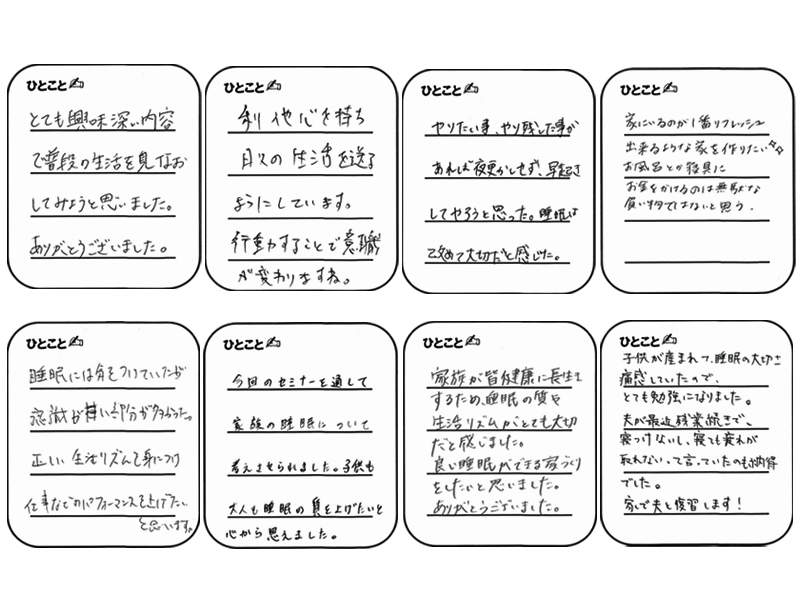 ひとこと
とても興味深い内容
で普段の生活を見なお
してみようと思いました。
ありがとうございました。
ひとこと
利他心を持ち
日々の生活を送る
ようにしています。
行動することで意識
が変わりますね。
ひとこと
やりたい事、やり残した事が
あれば夜更かしせず、早起き
してやろうと思った。睡眠は
改めて大切だと感じた。
ひとこと
家にいるのが1番リフレッシュ
出来るような家を作りたい
お風呂とか寝具に
お金をかけるのは無駄な
買い物ではないと思う。
ひとこと
睡眠には気をつけていたが
意識が甘い部分が多かった。
正しい生活リズムを身につけ
仕事などのパフォーマンスを上げたい
と思います。
ひとこと
今回のセミナーを通して
家族の睡眠について
考えさせられました。子供も
大人も睡眠の質を上げたいと
心から思えました。
ひとこと
家族が皆健康に長生き
するため、睡眠の質や
生活リズムがとても大切
だと感じました。
良い睡眠ができる家づくり
をしたいと思いました。
ありがとうございました。
ひとこと
子供が産まれて、睡眠の大切さ
痛感していたので、
とても勉強になりました。
夫が最近残業続きで、
寝つけないし、寝ても疲れが
取れない、って言っていたのも納得
でした。
家で夫と復習します!